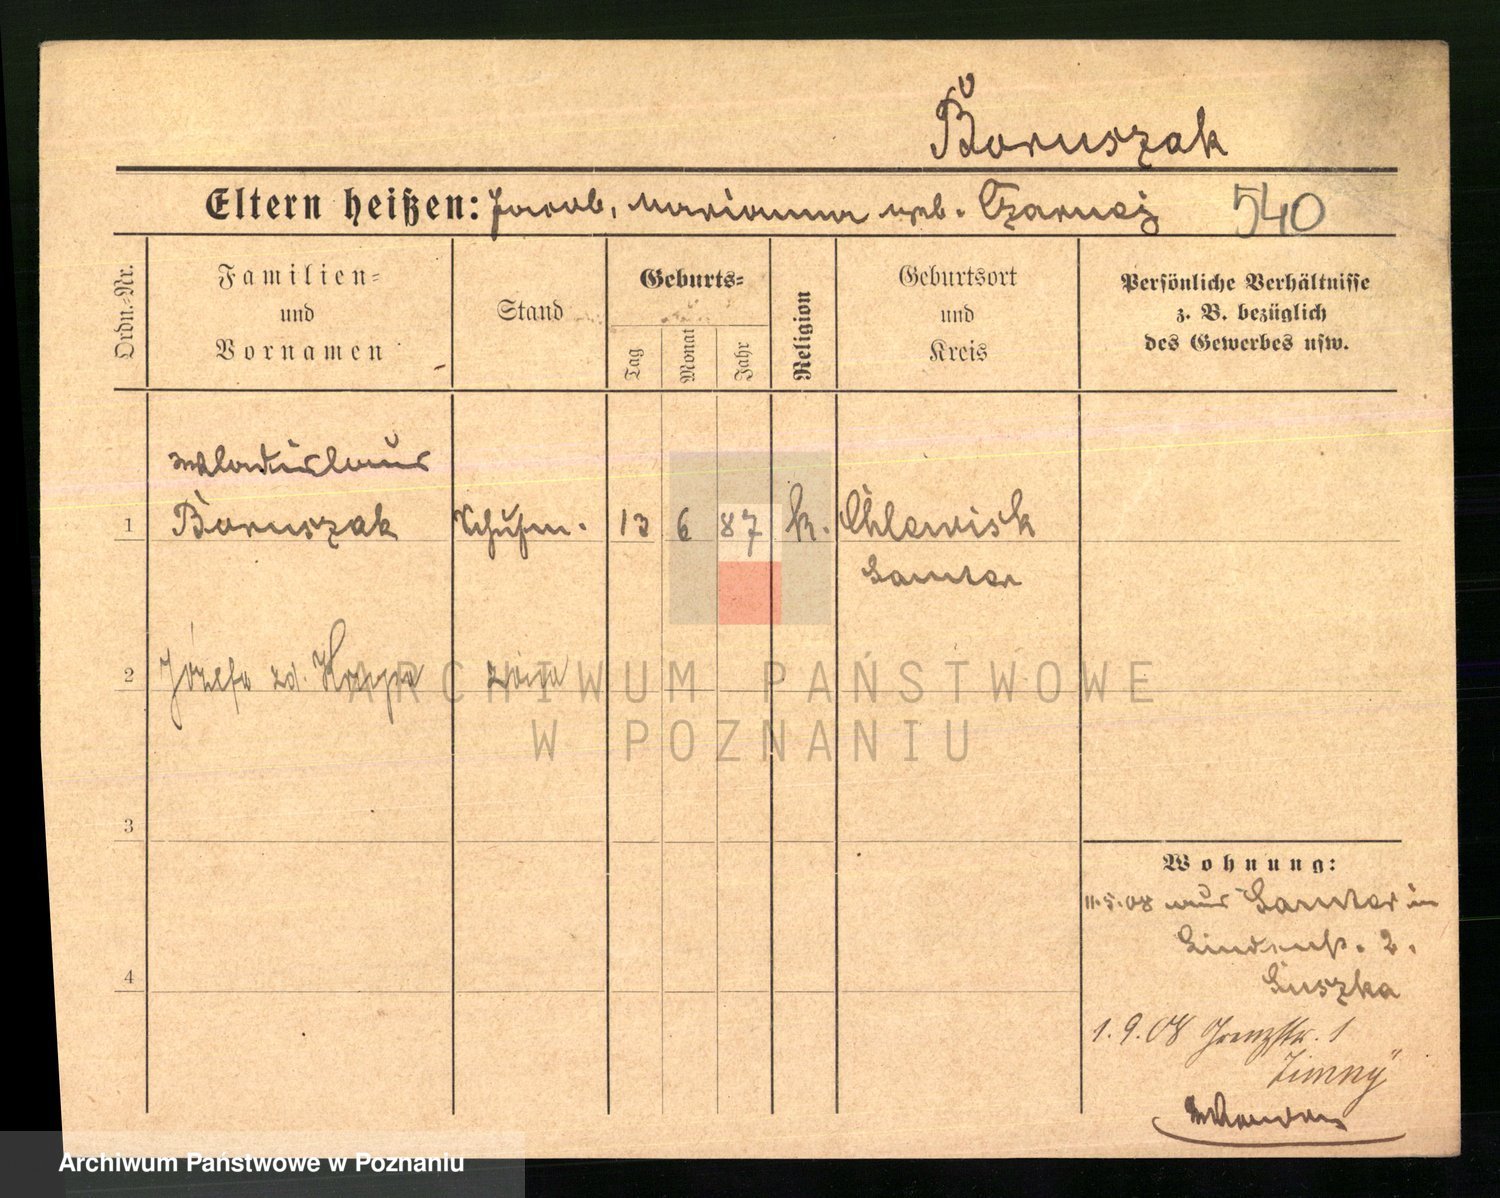 Boruszak
Eltern heißen: Jacob, Marianna geb. Czarnez 540
Ordn.-Nr.
Familien-
und
Vornamen
Stand
Geburts-
Tag
Monat
Jahr
Religion
Geburtsort
und
Kreis
Persönliche Verhältnisse
z. B. bezüglich
des Gewerbes usw.
Wladislaus
1 Boruszak Schuhm. 13 6 87 k. Chlewisk
Samter
2 Józefa zd.
3
4
Wohnung:
11.5.08 aus Samter in
Lindenstr. 2.
Luszka
1.9.08 Grenzstr. 1
Zimny
ARCHIWUM PAŃSTWOWE
W POZNANIU
Archiwum Państwowe w Poznaniu